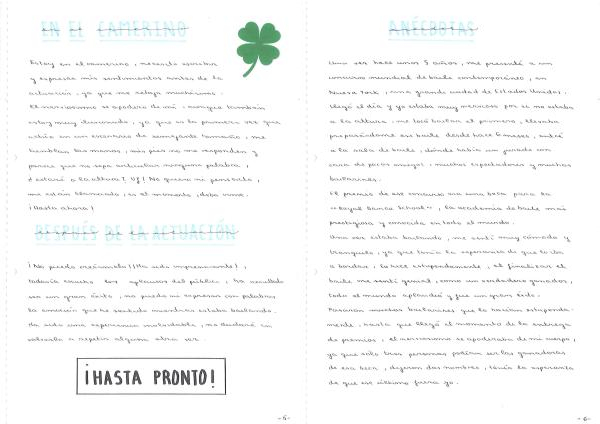 EN EL CAMERINO
Estoy en el camerino, necesito escribir
y expresar mis sentimientos antes de la
actuación, ya que me relaja muchísimo.
El nerviosismo se apodera de mí, aunque también
estoy muy ilusionada, ya que es la primera vez que
actúo en un escenario de semejante tamaño, me
tiemblan las manos, mis pies no me responden y
parece que no sepa articular ninguna palabra,
¿estaré a la altura? ¡Uf! No quiero ni pensarlo,
me están llamando, es el momento, debo irme.
¡Hasta ahora!
DESPUÉS DE LA ACTUACIÓN
¡No puedo creérmelo! ¡Ha sido impresionante!,
todavía escucho los aplausos del público, ha resultado
ser un gran éxito, no puedo ni expresar con palabras
la emoción que he sentido mientras estaba bailando.
Ha sido una experiencia inolvidable, no dudaré en
volverla a repetir alguna otra vez.
¡HASTA PRONTO!
-5-
ANÉCDOTAS
Una vez hace unos 5 años, me presenté a un
concurso mundial de baile contemporáneo, en
Nueva York, una grande ciudad de Estados Unidos.
Llegó el día y yo estaba muy nerviosa por si no estaba
a la altura, me tocó bailar el primero, llevaba
preparándome ese baile desde hace 6 meses, entré
a la sala de baile, donde había un jurado con
cara de pocos amigos, muchos espectadores y muchos
bailarines.
El premio de ese concurso era una beca para la
"Royal Dance School", la academia de baile más
prestigiosa y conocida en todo el mundo.
Una vez estaba bailando, me sentí muy cómoda y
tranquila, ya que tenía la esperanza de que lo iba
a bordar, lo hice estupendamente, al finalizar el
baile me sentí genial, como un verdadero ganador,
todo el mundo aplaudió y fue un gran éxito.
Pasaron muchos bailarines que lo hacían estupenda-
mente, hasta que llegó el momento de la entrega
de premios, el nerviosismo se apoderaba de mi cuerpo,
ya que solo tres personas podían ser las ganadoras
de esa beca, dijeron dos nombres, tenía la esperanza
de que ese último fuera yo.
-6-